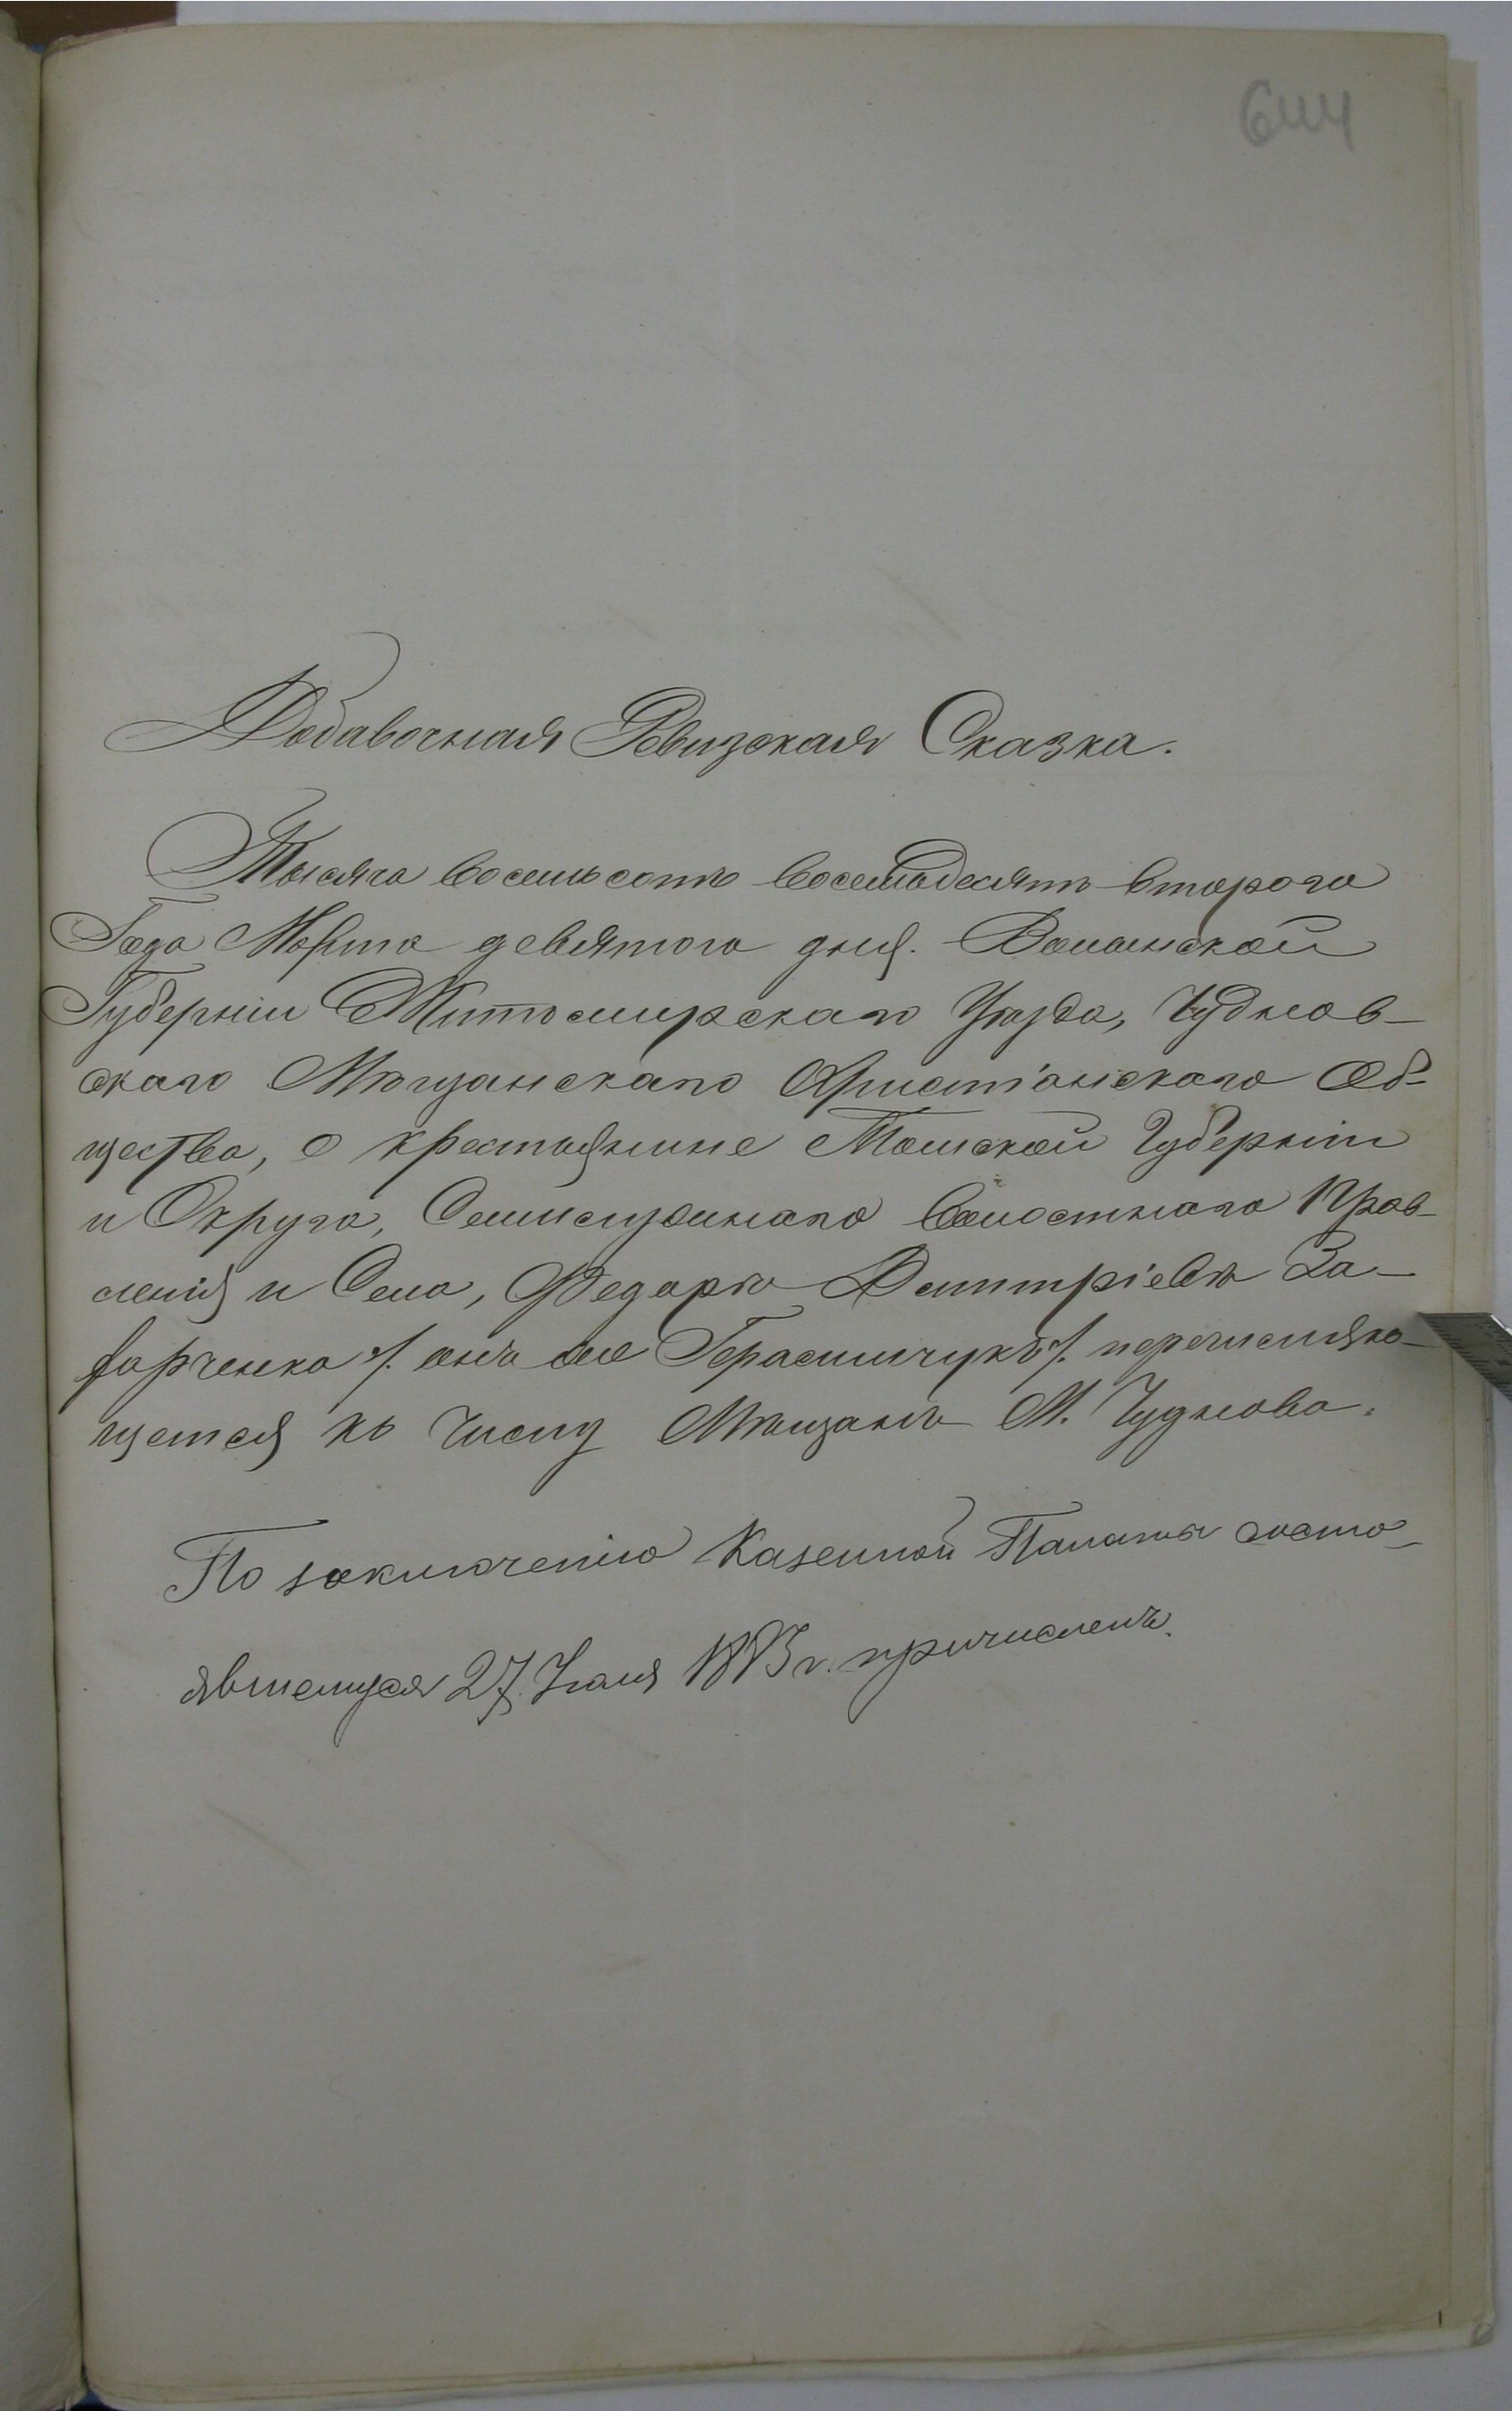 644
Добавочная Ревизская Сказка.
Тысяча восемьсотъ восемьдесятъ втораго
Года Марта девятого дня. Волынской
Губерніи Житомирскаго Уѣзда, Чуднов-
скаго Мѣщанскаго Христіанскаго Об-
щества, о крестьянине Томской Губерніи
и Округа, Семилужнаго волостнаго Прав-
ленія и Села, Федоръ Дмитріевъ За-
харченко /. онъ же Герасимчукъ /. перечисляю-
щемся къ числу Мѣщанъ М. Чуднова.
По заключенію Казенной Палаты состо-
явшемуся 27 Іюля 1883 г. причисленъ.